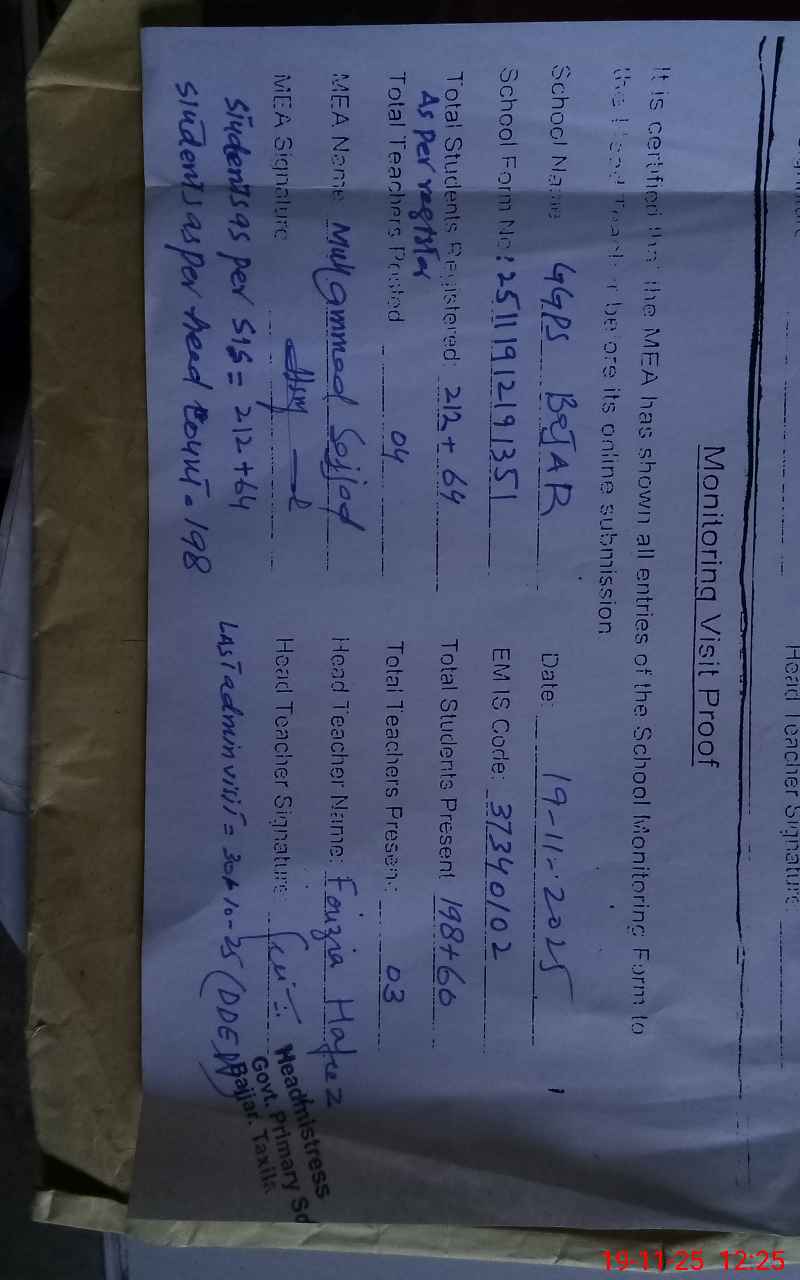 Head Teacher Signature:
Monitoring Visit Proof
It is certified that the MEA has shown all entries of the School Monitoring Form to
the Head Teacher before its online submission
School Name GGPS BAJAR Date: 19-11-2025
School Form No: 25111912191351 EMIS Code: 37340102
Total Students Registered: 212+64 Total Students Present 198+60
As per register
Total Teachers Posted 04 Total Teachers Present: 03
MEA Name Muhammad Sajjad Head Teacher Name: Fouzia Hafeez
MEA Signature Head Teacher Signature:
Students as per SIS = 212+64 Last admin visit = 30-10-25 (DDEO)
Students as per head count = 198
Headmistress
Govt. Primary Sc
Bajjar. Taxila
19-11-25 12:25